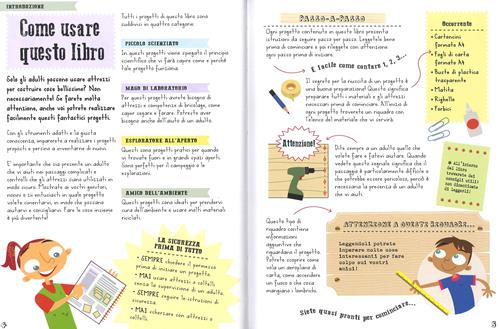 INTRODUZIONE
Come usare
questo libro
Solo gli adulti possono usare attrezzi
per costruire cose bellissime? Non
necessariamente! Se farete molta
attenzione, anche voi potrete realizzare
facilmente questi fantastici progetti.
Con gli strumenti adatti e la giusta
conoscenza, imparerete a realizzare i progetti
proposti e persino a inventarne di nuovi.
E' importante che sia presente un adulto
che vi aiuti nei passaggi complicati e
controlli che gli attrezzi siano utilizzati in
modo sicuro. Mostrate ai vostri genitori,
nonni e zii entusiasti in quale progetto
volete cimentarvi, in modo che possano
aiutarvi e consigliarvi. Fare le cose insieme
è più divertente!
Tutti i progetti di questo libro sono
suddivisi in quattro categorie:
PICCOLO SCIENZIATO
In questi progetti viene spiegato il principio
scientifico che vi farà capire come e perché
tale progetto funziona.
MAGO DI LABORATORIO
Per questi progetti avrete bisogno di
attrezzi e competenze di bricolage, come
saper segare e forare. Potreste aver
bisogno anche dell'aiuto di un adulto.
ESPLORATORE ALL'APERTO
Questi sono progetti pratici per quando
vi trovate fuori e in grandi spazi aperti.
Sono perfetti per il campeggio o le
esplorazioni.
AMICO DELL'AMBIENTE
Questi progetti sono ideali per prendersi
cura dell'ambiente e usare molti materiali
riciclati.
LA SICUREZZA
PRIMA DI TUTTO
- SEMPRE chiedere il permesso
prima di iniziare un progetto.
- MAI usare attrezzi o coltelli
senza la supervisione di un adulto.
- SEMPRE seguire le istruzioni di
sicurezza.
- MAI scherzare con attrezzi o
coltelli.
PASSO-A-PASSO
Ogni progetto contenuto in questo libro presenta
istruzioni da seguire passo per passo. Leggetele bene
prima di cominciare e poi rileggete con attenzione
ogni passo prima di iniziare.
È facile come contare 1, 2, 3...
Il segreto per la riuscita di un progetto è
una buona preparazione! Questo significa
preparare tutti i materiali e gli attrezzi
necessari prima di cominciare. All'inizio di
ogni progetto troverete un riquadro con
l'elenco del materiale che vi servirà.
Occorrente
• Cartoncini
formato A4
• Fogli di carta
formato A4
• Buste di plastica
trasparente
• Matita
• Righello
• Forbici
Attenzione!
Dite sempre a un adulto quello che
volete fare e fatevi aiutare. Quando
vedete questo segnale significa che il
passaggio è particolarmente difficile o
che potrebbe essere pericoloso, perciò è
necessaria la presenza di un adulto
che vi aiuti.
All'interno
del libro
troverete dei
consigli utili:
non dimenticate
di leggerli!
Questo tipo di
riquadro contiene
informazioni
aggiuntive che
riguardano il progetto.
Potrete scoprire come
vola un aeroplano di
carta, come accendere
un fuoco e che cosa
mangiano i lombrichi.
ATTENZIONE A QUESTI RIQUADRI...
Leggendoli potrete
imparare molte cose
interessanti per fare
colpo sui vostri
amici!
Siete quasi pronti per cominciare...